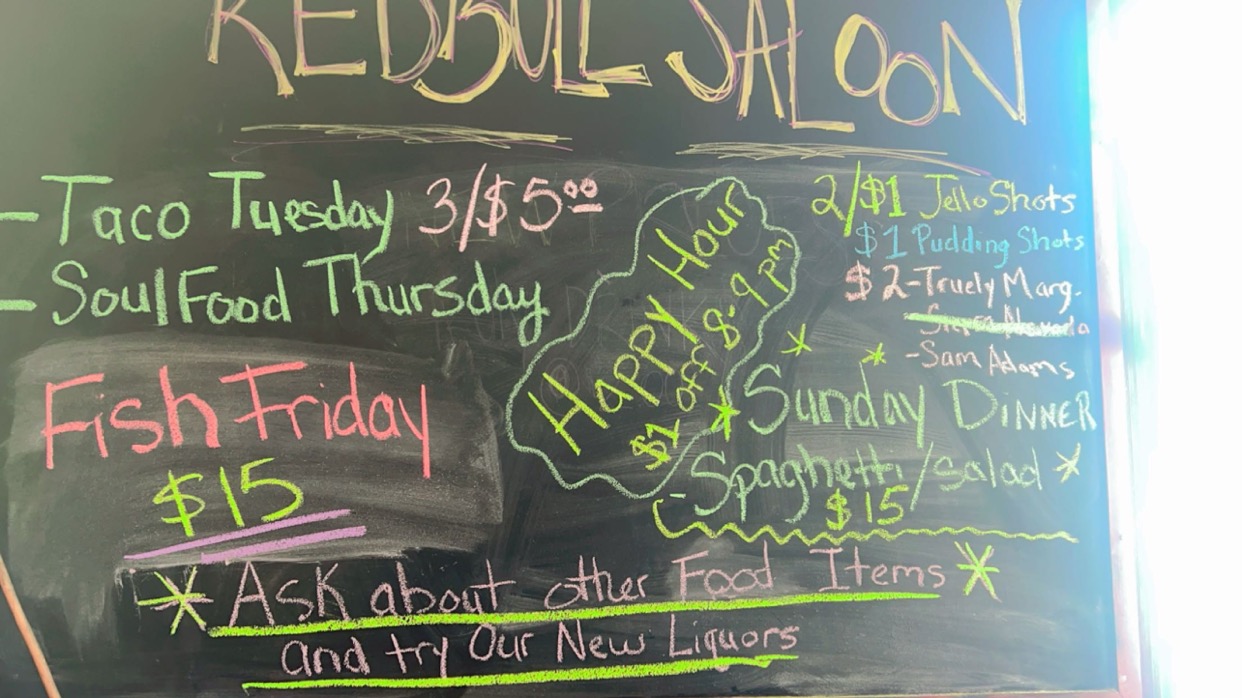 REDBULL SALOON
- Taco Tuesday 3/$5⁰⁰
- Soul Food Thursday
Fish Friday
$15
Happy Hour
$1 off 8-9 pm
2/$1 Jello Shots
$1 Pudding Shots
$2 - Truely Marg.
- Sierra Nevada
- Sam Adams
Sunday DINNER
- Spaghetti/salad
$15
Ask about other Food Items
and try Our New Liquors